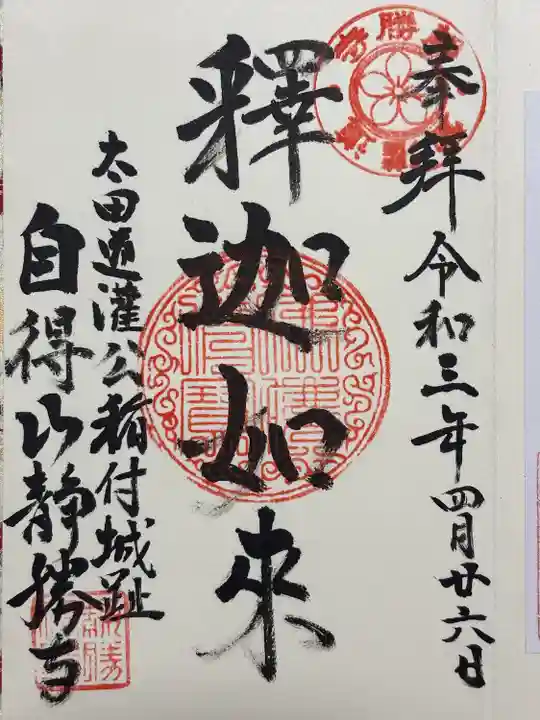 奉拜
令和三年四月廿六日
釋迦如来
太田道灌公稲付城趾
自得山静勝寺